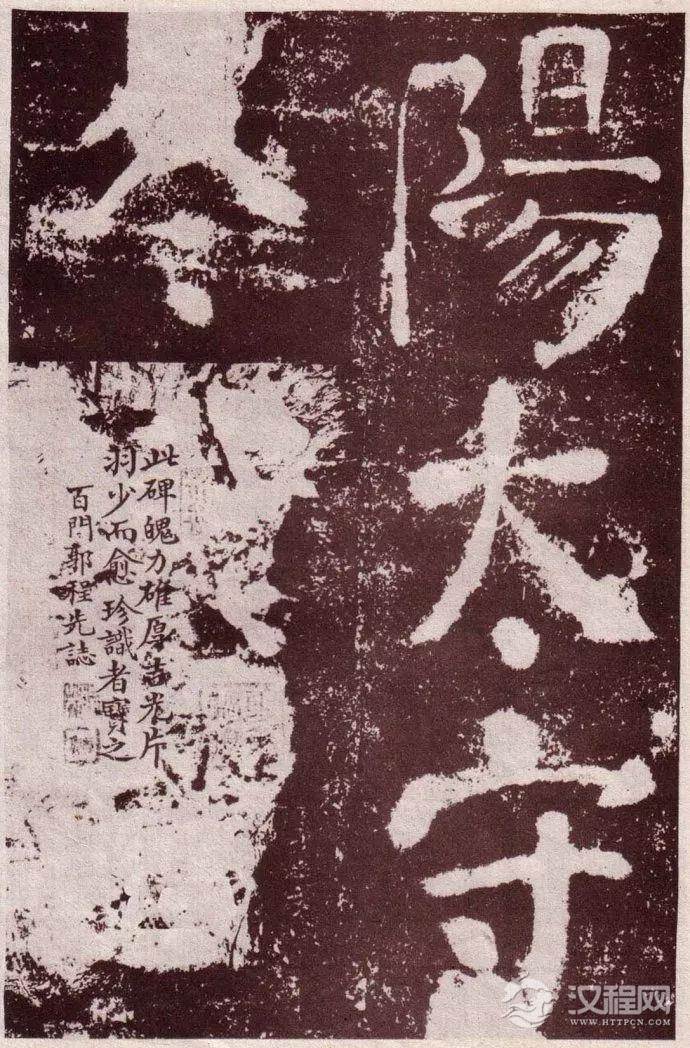 陽太守
此碑魄力雄厚吉光片
羽少而愈珍識者寶之
百門郭程先誌
汉程网
WWW.HTTPCN.COM